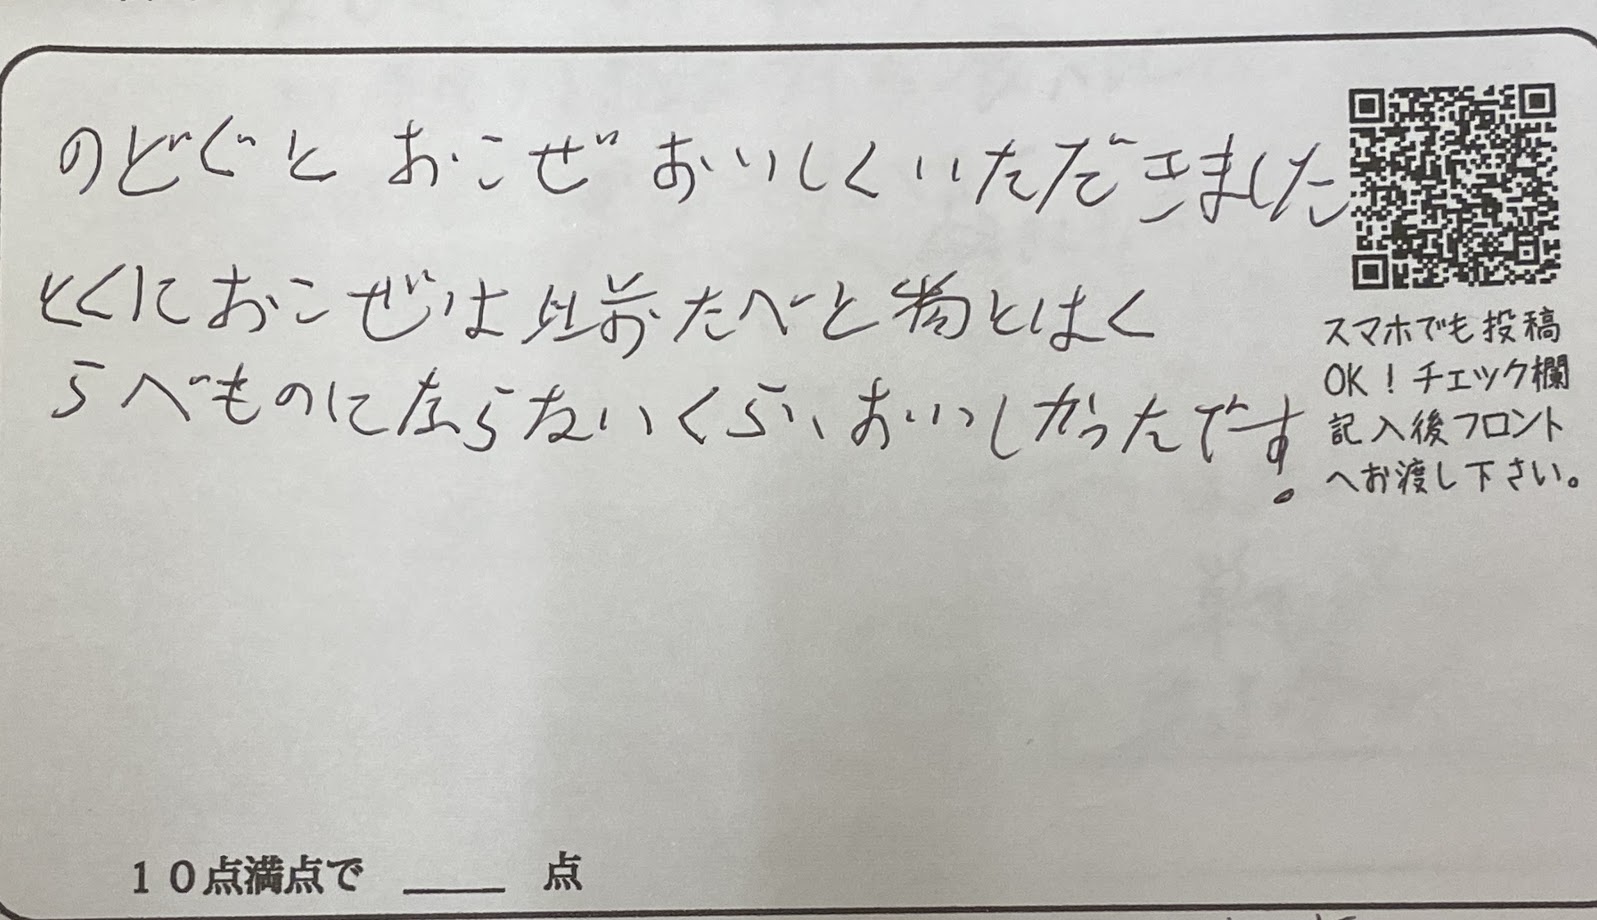 のどぐと おこぜ おいしくいただきました
とくにおこぜは以前たべと物とはく
らべものにならないくらい、おいしかったです!
スマホでも投稿
OK！チェック欄
記入後フロント
へお渡し下さい。
10点満点で ____ 点